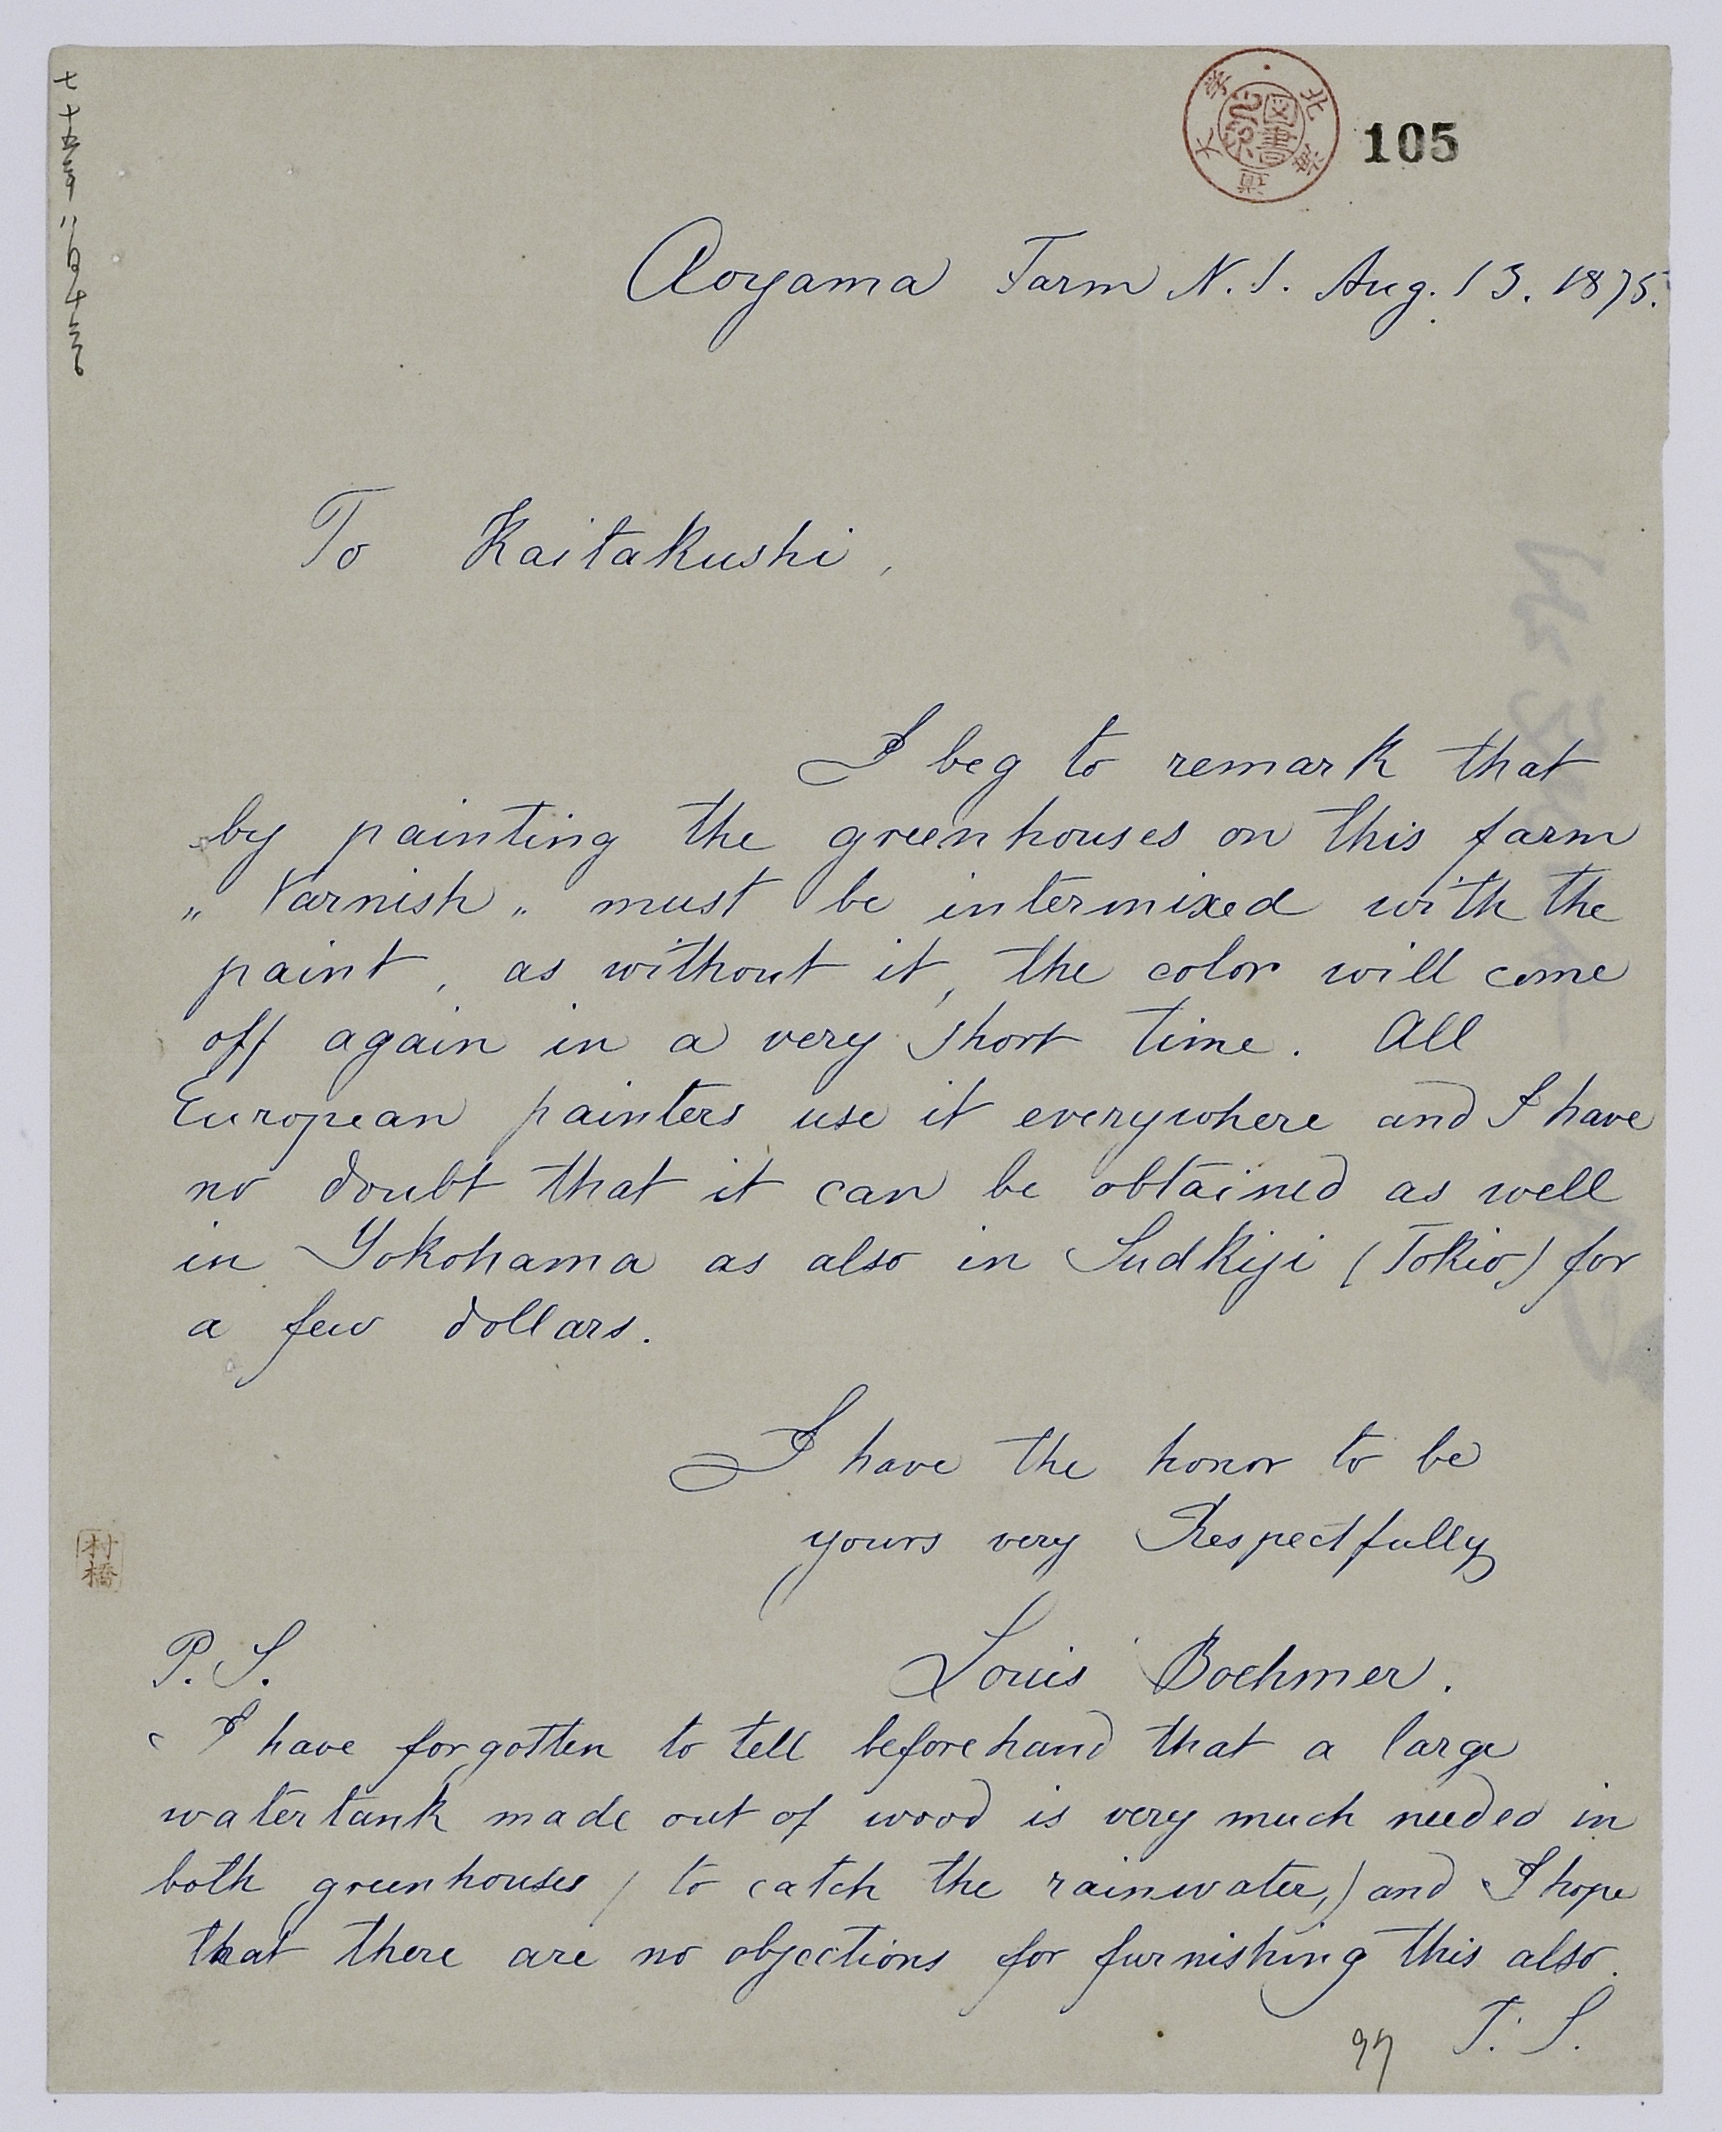 105
北海道大学
図書
Aoyama Farm N. 1. Aug. 13. 1875.
To Kaitakushi,
I beg to remark that
by painting the greenhouses on this farm
„ Varnish „ must be intermixed with the
paint, as without it, the color will come
off again in a very short time. All
European painters use it everywhere and I have
no doubt that it can be obtained as well
in Yokohama as also in Sudkiji (Tokio) for
a few dollars.
I have the honor to be
yours very Respectfully
Louis Boehmer.
村橋
P. S.
I have forgotten to tell beforehand that a large
watertank made out of wood is very much needed in
both greenhouses (to catch the rainwater,) and I hope
that there are no objections for furnishing this also.
T. S.
97